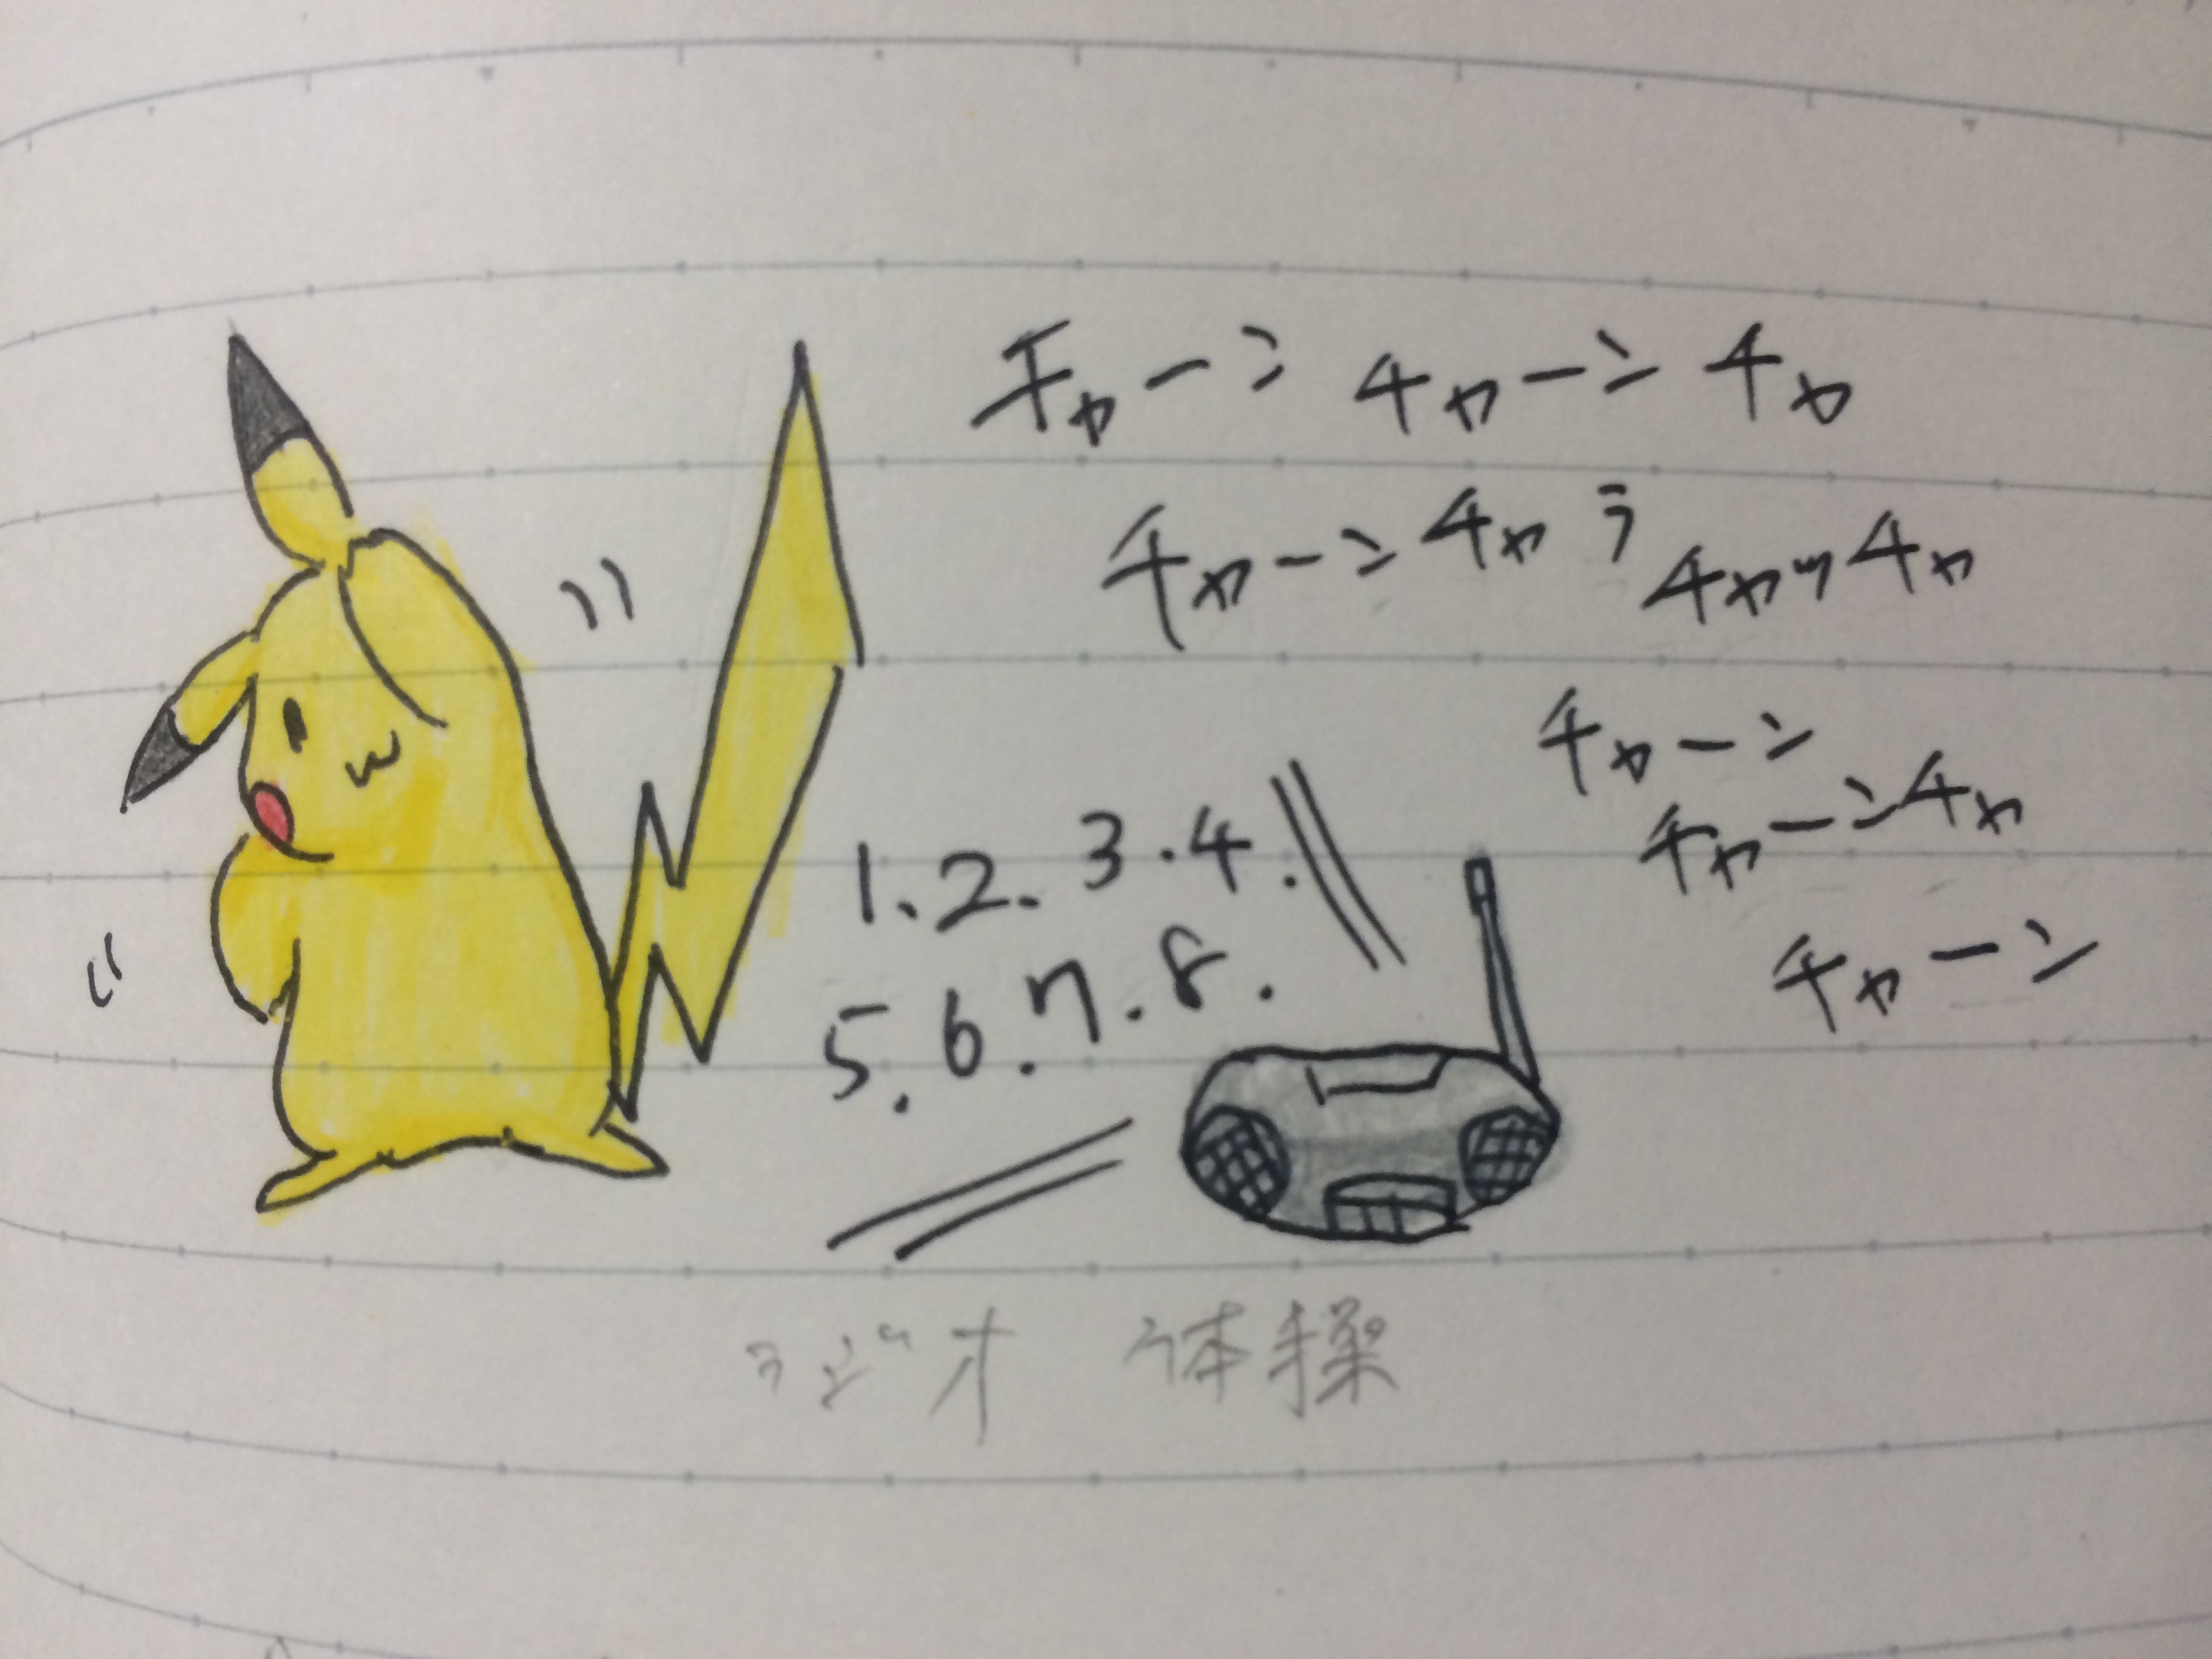 チャーン チャーン チャ
チャーン チャラ チャッチャ
チャーン
チャーンチャ
チャーン
1.2.3.4.
5.6.7.8.
ラジオ 体操